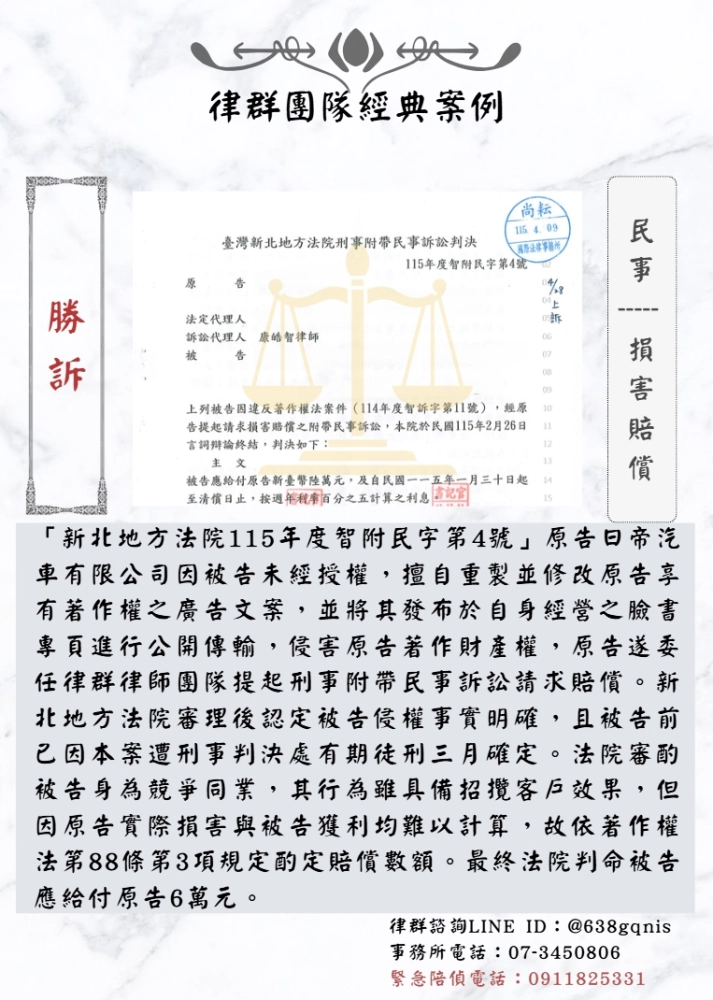 律群團隊經典案例
勝訴
民事-----損害賠償
尚耘
115. 4. 09
國際法律事務所
4/28上訴
臺灣新北地方法院刑事附帶民事訴訟判決
115年度智附民字第4號
原 告
法定代理人
訴訟代理人 康皓智律師
被 告
上列被告因違反著作權法案件(114年度智訴字第11號),經原
告提起請求損害賠償之附帶民事訴訟,本院於民國115年2月26日
言詞辯論終結,判決如下:
主 文
被告應給付原告新臺幣陸萬元,及自民國一一五年一月三十日起
至清償日止,按週年利率百分之五計算之利息。
書記官
02
03
04
05
06
07
08
09
10
11
12
13
14
15
「新北地方法院115年度智附民字第4號」原告日帝汽
車有限公司因被告未經授權,擅自重製並修改原告享
有著作權之廣告文案,並將其發布於自身經營之臉書
專頁進行公開傳輸,侵害原告著作財產權,原告遂委
任律群律師團隊提起刑事附帶民事訴訟請求賠償。新
北地方法院審理後認定被告侵權事實明確,且被告前
已因本案遭刑事判決處有期徒刑三月確定。法院審酌
被告身為競爭同業,其行為雖具備招攬客戶效果,但
因原告實際損害與被告獲利均難以計算,故依著作權
法第88條第3項規定酌定賠償數額。最終法院判命被告
應給付原告6萬元。
律群諮詢LINE ID:@638gqnis
事務所電話:07-3450806
緊急陪偵電話:0911825331